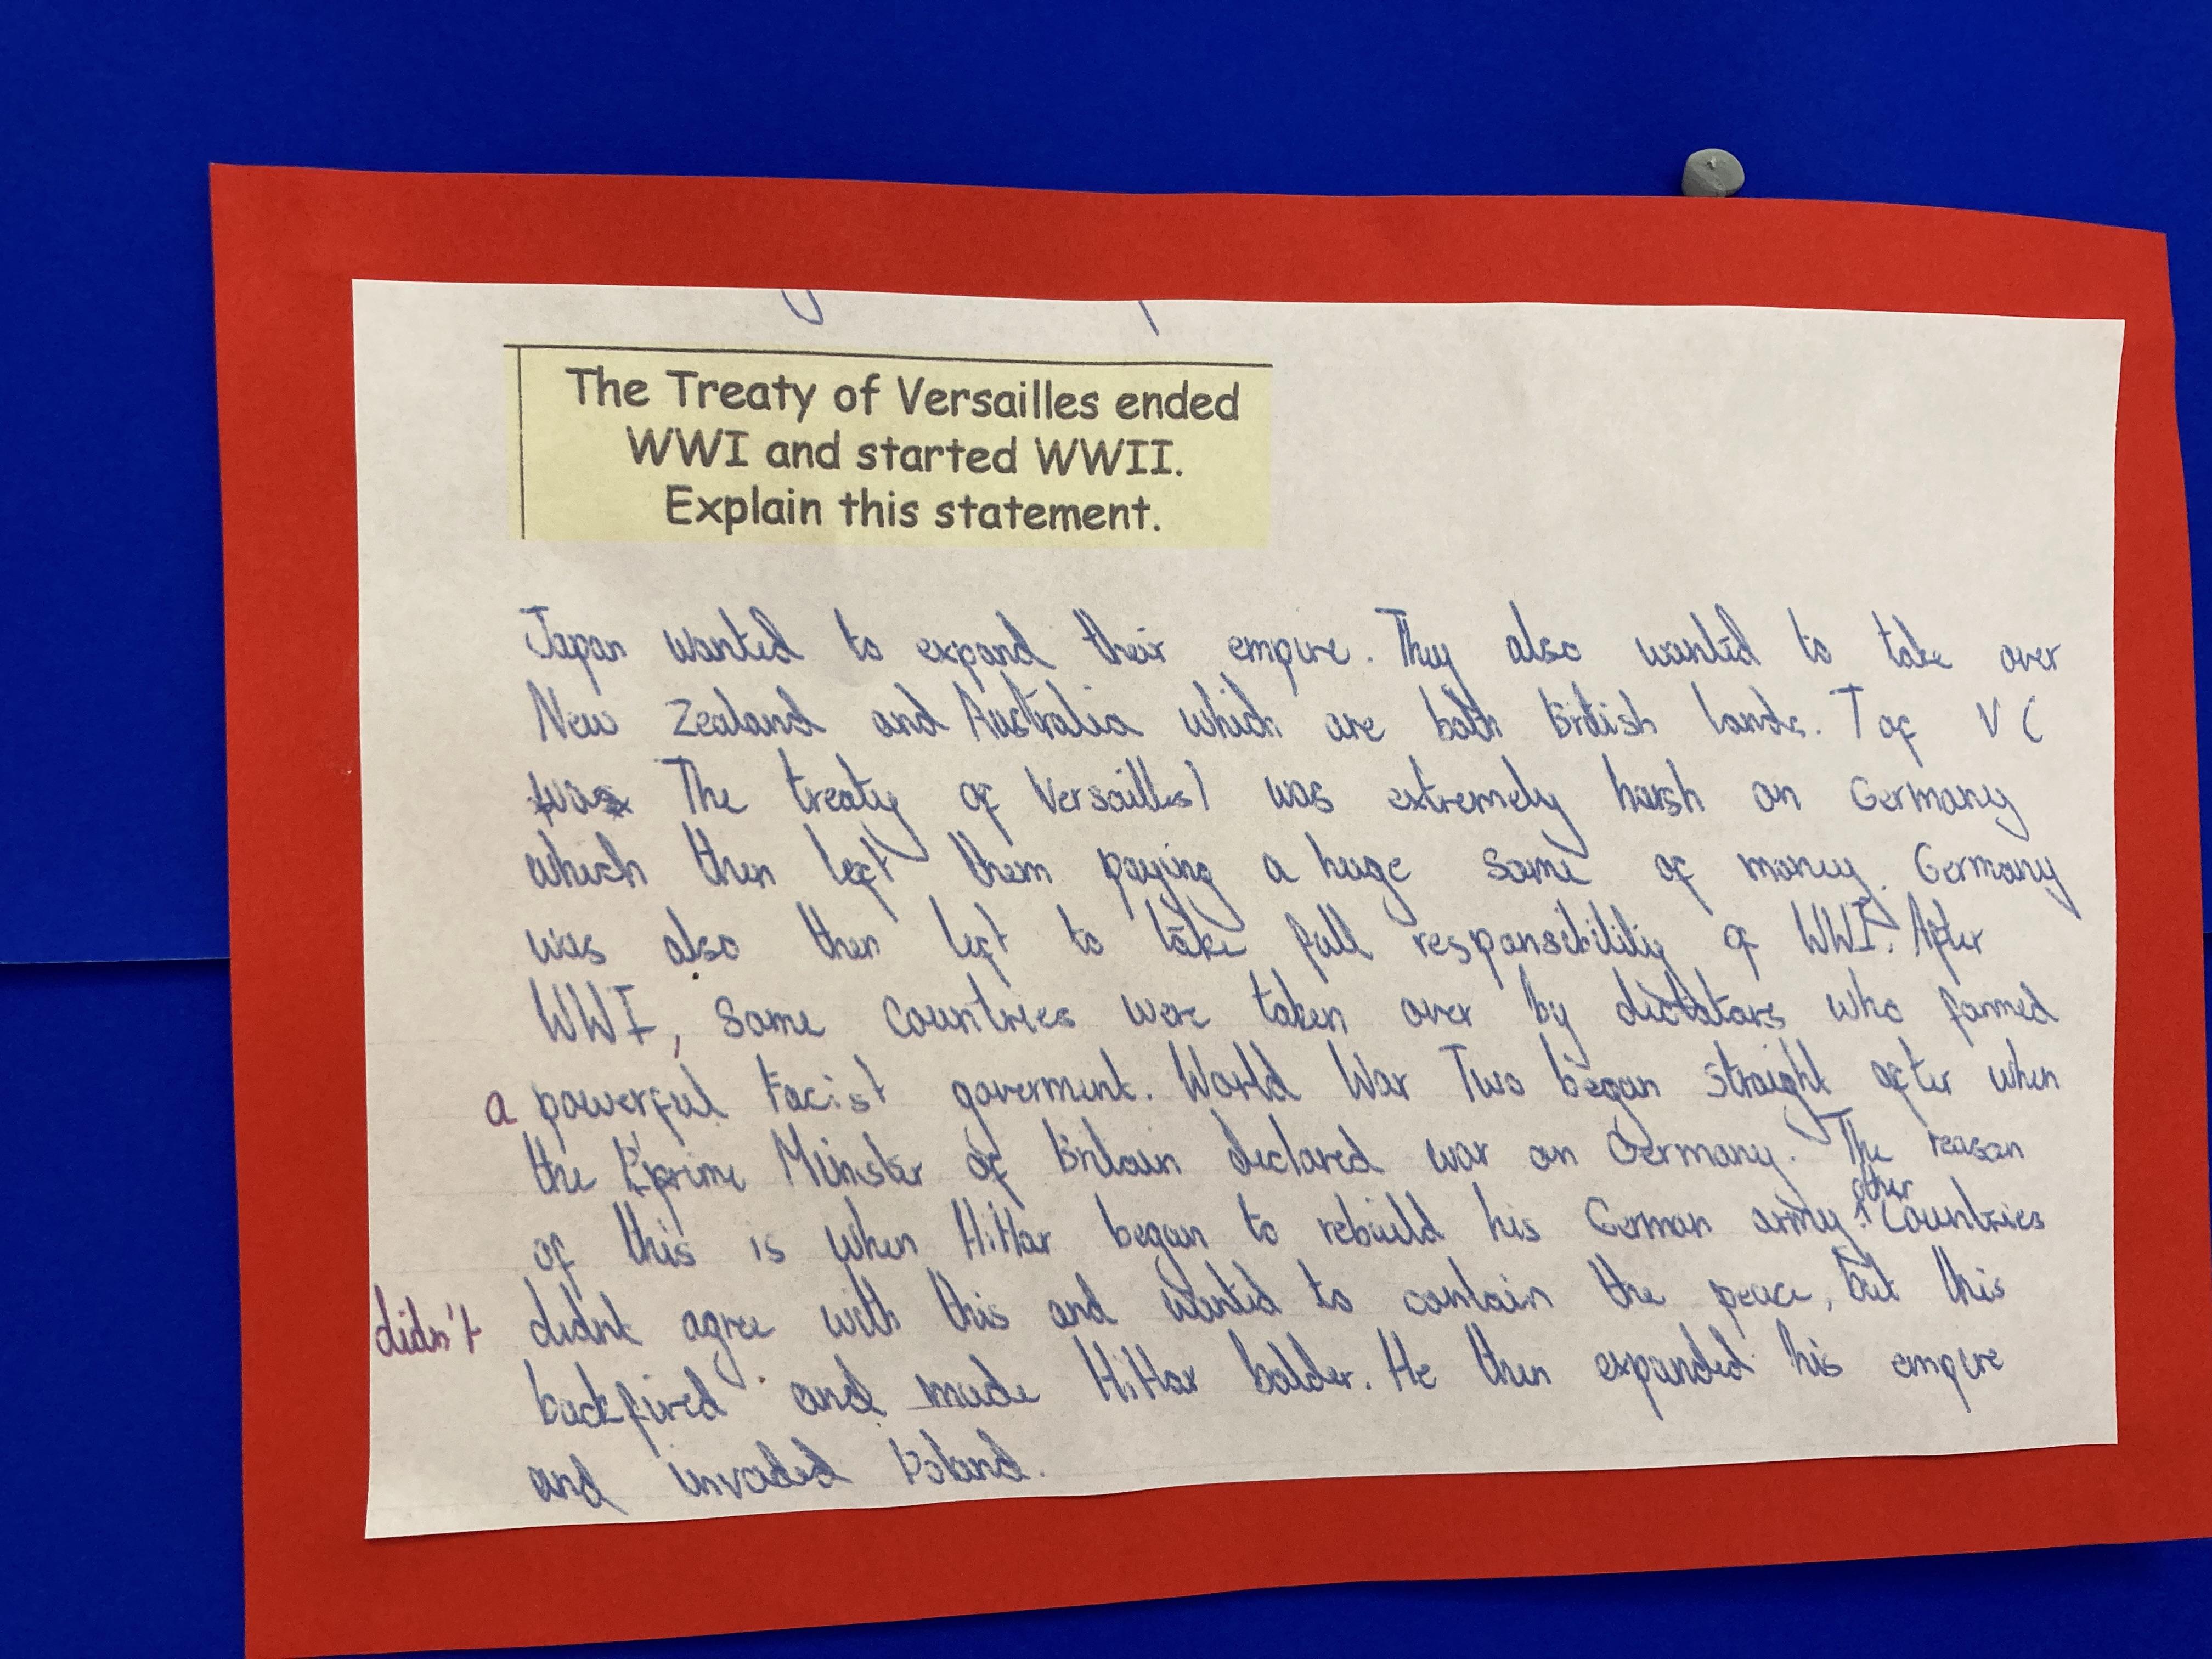 The Treaty of Versailles ended
WWI and started WWII.
Explain this statement.
Japan wanted to expand their empire. They also wanted to take over
New Zealand and Australia which are both British lands. T of V (
was The treaty of Versailles) was extremely harsh on Germany
which then left them paying a huge some of money. Germany
was also then left to take full responsibility of WWI. After
WWI, some countries were taken over by dictators who formed
a powerful facist goverment. World War Two began straight after when
the prime Minister of Britain declared war on Germany. The reason
of this is when Hitlar began to rebuild his German army. other countries
didn't didnt agree with this and wanted to contain the peace, but this
backfired and made Hitlar bolder. He then expanded his empire
and invaded Poland.